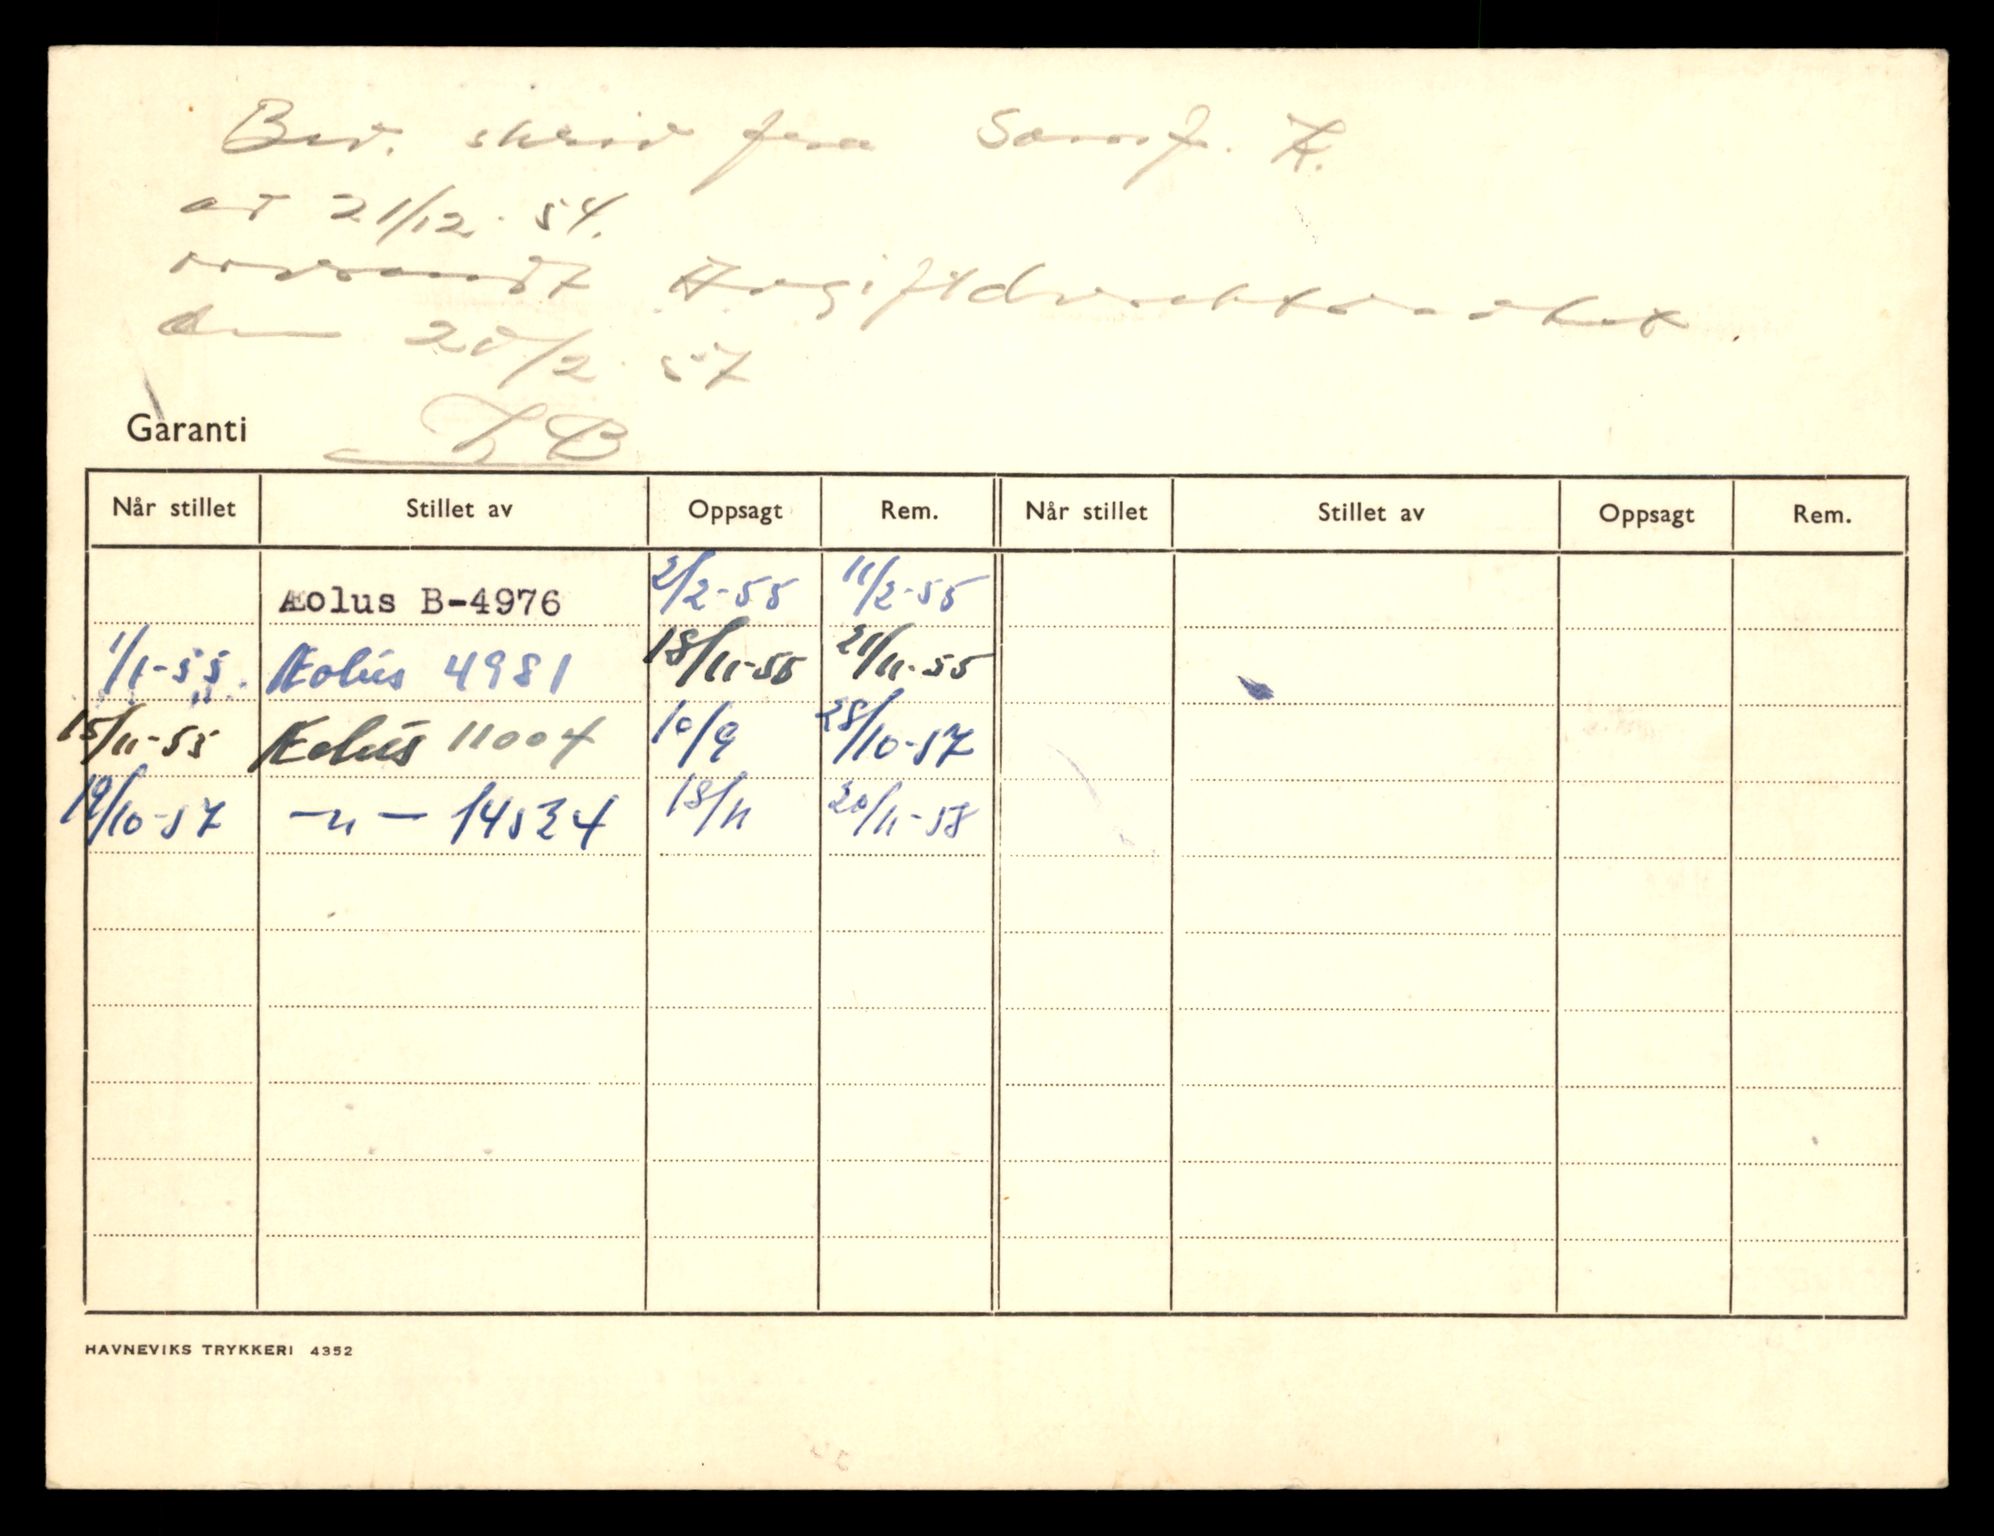 skriv fra Samf. K.
av 21/12-54.
Avgiftdirektoratet
den 20/2-57
Garanti
Når stillet Stillet av Oppsagt Rem. Når stillet Stillet av Oppsagt Rem.
Æolus B-4976 2/2-55 11/2-55
1/1-55. Æolus 4981 18/11-55 21/11-55
15/11-55 Æolus 11004 10/9 28/10-57
19/10-57 -"- 14524 18/11 20/11-58
HAVNEVIKS TRYKKERI 4352